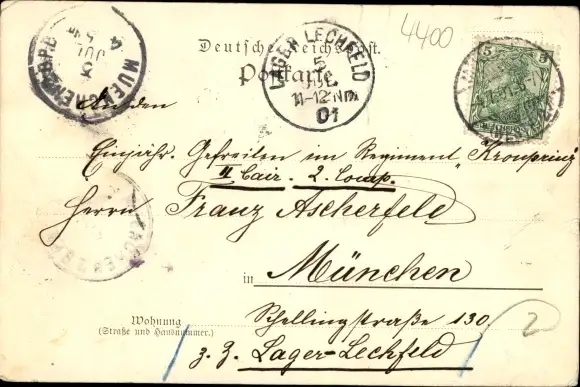 4400
Deutsche Reichspost.
Postkarte
LAGER LECHFELD
5
JUL
11-12 Nm.
01
MUENCHEN
4
5
5
An den
Einjähr. Gefreiten im Regiment „Kronprinz
II Bair. 2. Comp.
Herrn Franz Ascherfeld
in München
Wohnung
(Straße und Hausnummer.)
Schellingstraße 130.
2
z. Z. Lager-Lechfeld